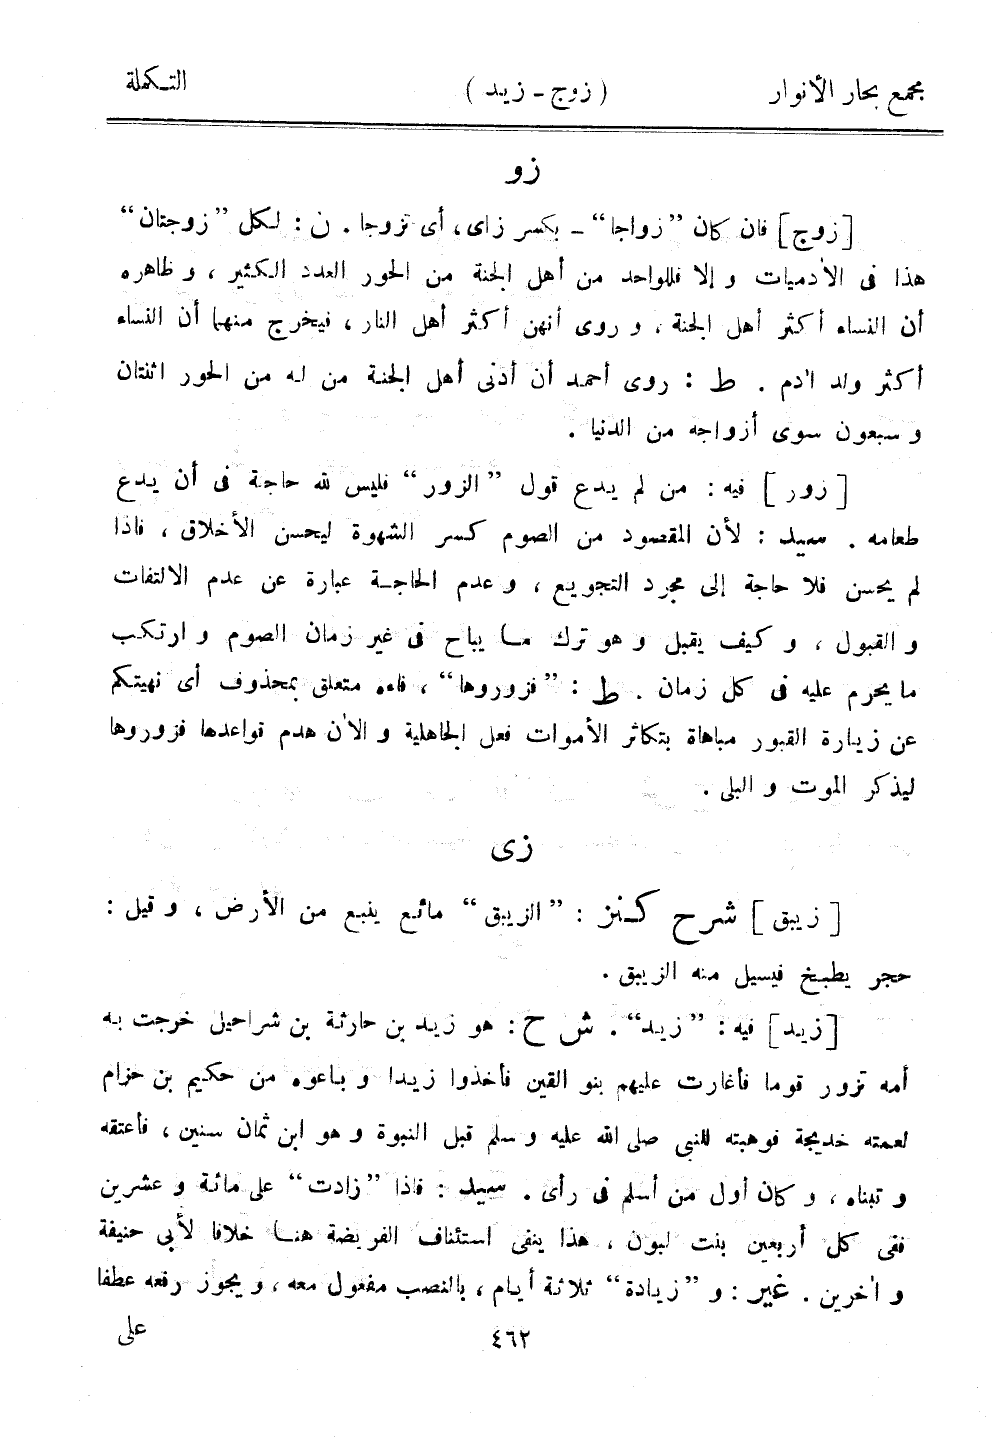 مجمع بحار الأنوار ( زوج ـ زيد ) التكملة
زو
[زوج] فان كان ”زواجا“ ـ بكسر زاى، أى تزوجا . ن : لكل ”زوجتان“
هذا فى الأدميات و إلا فللواحد من أهل الجنة من الحور العدد الكثير ، و ظاهره
أن النساء أكثر أهل الجنة ، و روى أنهن أكثر أهل النار ، فيخرج منهما أن النساء
أكثر ولد اٰدم . ط : روى أحمد أن أدنى أهل الجنة من له من الحور اثنتان
و سبعون سوى أزواجه من الدنيا .
[ زور ] فيه : من لم يدع قول ”الزور“ فليس لله حاجة فى أن يدع
طعامه . سيد : لأن المقصود من الصوم كسر الشهوة ليحسن الأخلاق ، فاذا
لم يحسن فلا حاجة إلى مجرد التجويع ، و عدم الحاجة عبارة عن عدم الالتفات
و القبول ، و كيف يقبل و هو ترك ما يباح فى غير زمان الصوم و ارتكب
ما يحرم عليه فى كل زمان . ط : ”فزوروها“ ، فاءه متعلق بمحذوف أى نهيتكم
عن زيارة القبور مباهاة بتكاثر الأموات فعل الجاهلية و الأن هدم قواعدها فزوروها
ليذكر الموت و البلى .
زى
[ زيبق ] شرح كنز : ”الزيبق“ مائع ينبع من الأرض ، و قيل :
حجر يطبخ فيسيل منه الزيبق .
[زيد] فيه : ”زيد“ . ش ح : هو زيد بن حارثة بن شراحيل خرجت به
أمه تزور قوما فأغارت عليهم بنو القين فأخذوا زيدا و باعوه من حكيم بن حزام
لعمته خديجة فوهبته للنبي صلى الله عليه و سلم قبل النبوة و هو ابن ثمان سنين ، فأعتقه
و تبناه ، و كان أول من أسلم فى رأى . سيد : فاذا ”زادت“ على مائة و عشرين
ففى كل أربعين بنت لبون ، هذا ينفى استئناف الفريضة هنا خلافا لأبى حنيفة
و اٰخرين . غير : و ”زيادة“ ثلاثة أيام ، بالنصب مفعول معه ، و يجوز رفعه عطفا
على
٤٦٢